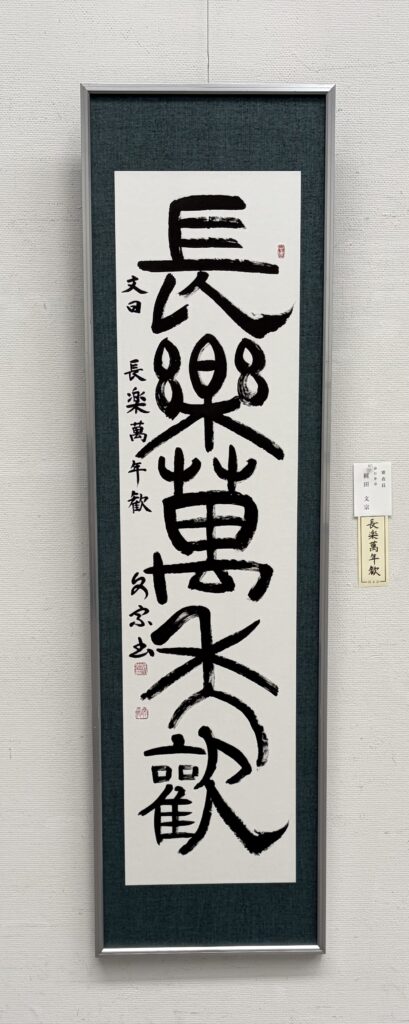 長樂萬年歡
文曰 長楽萬年歓 文宗書
審査員
田 文宗
長楽萬年歓